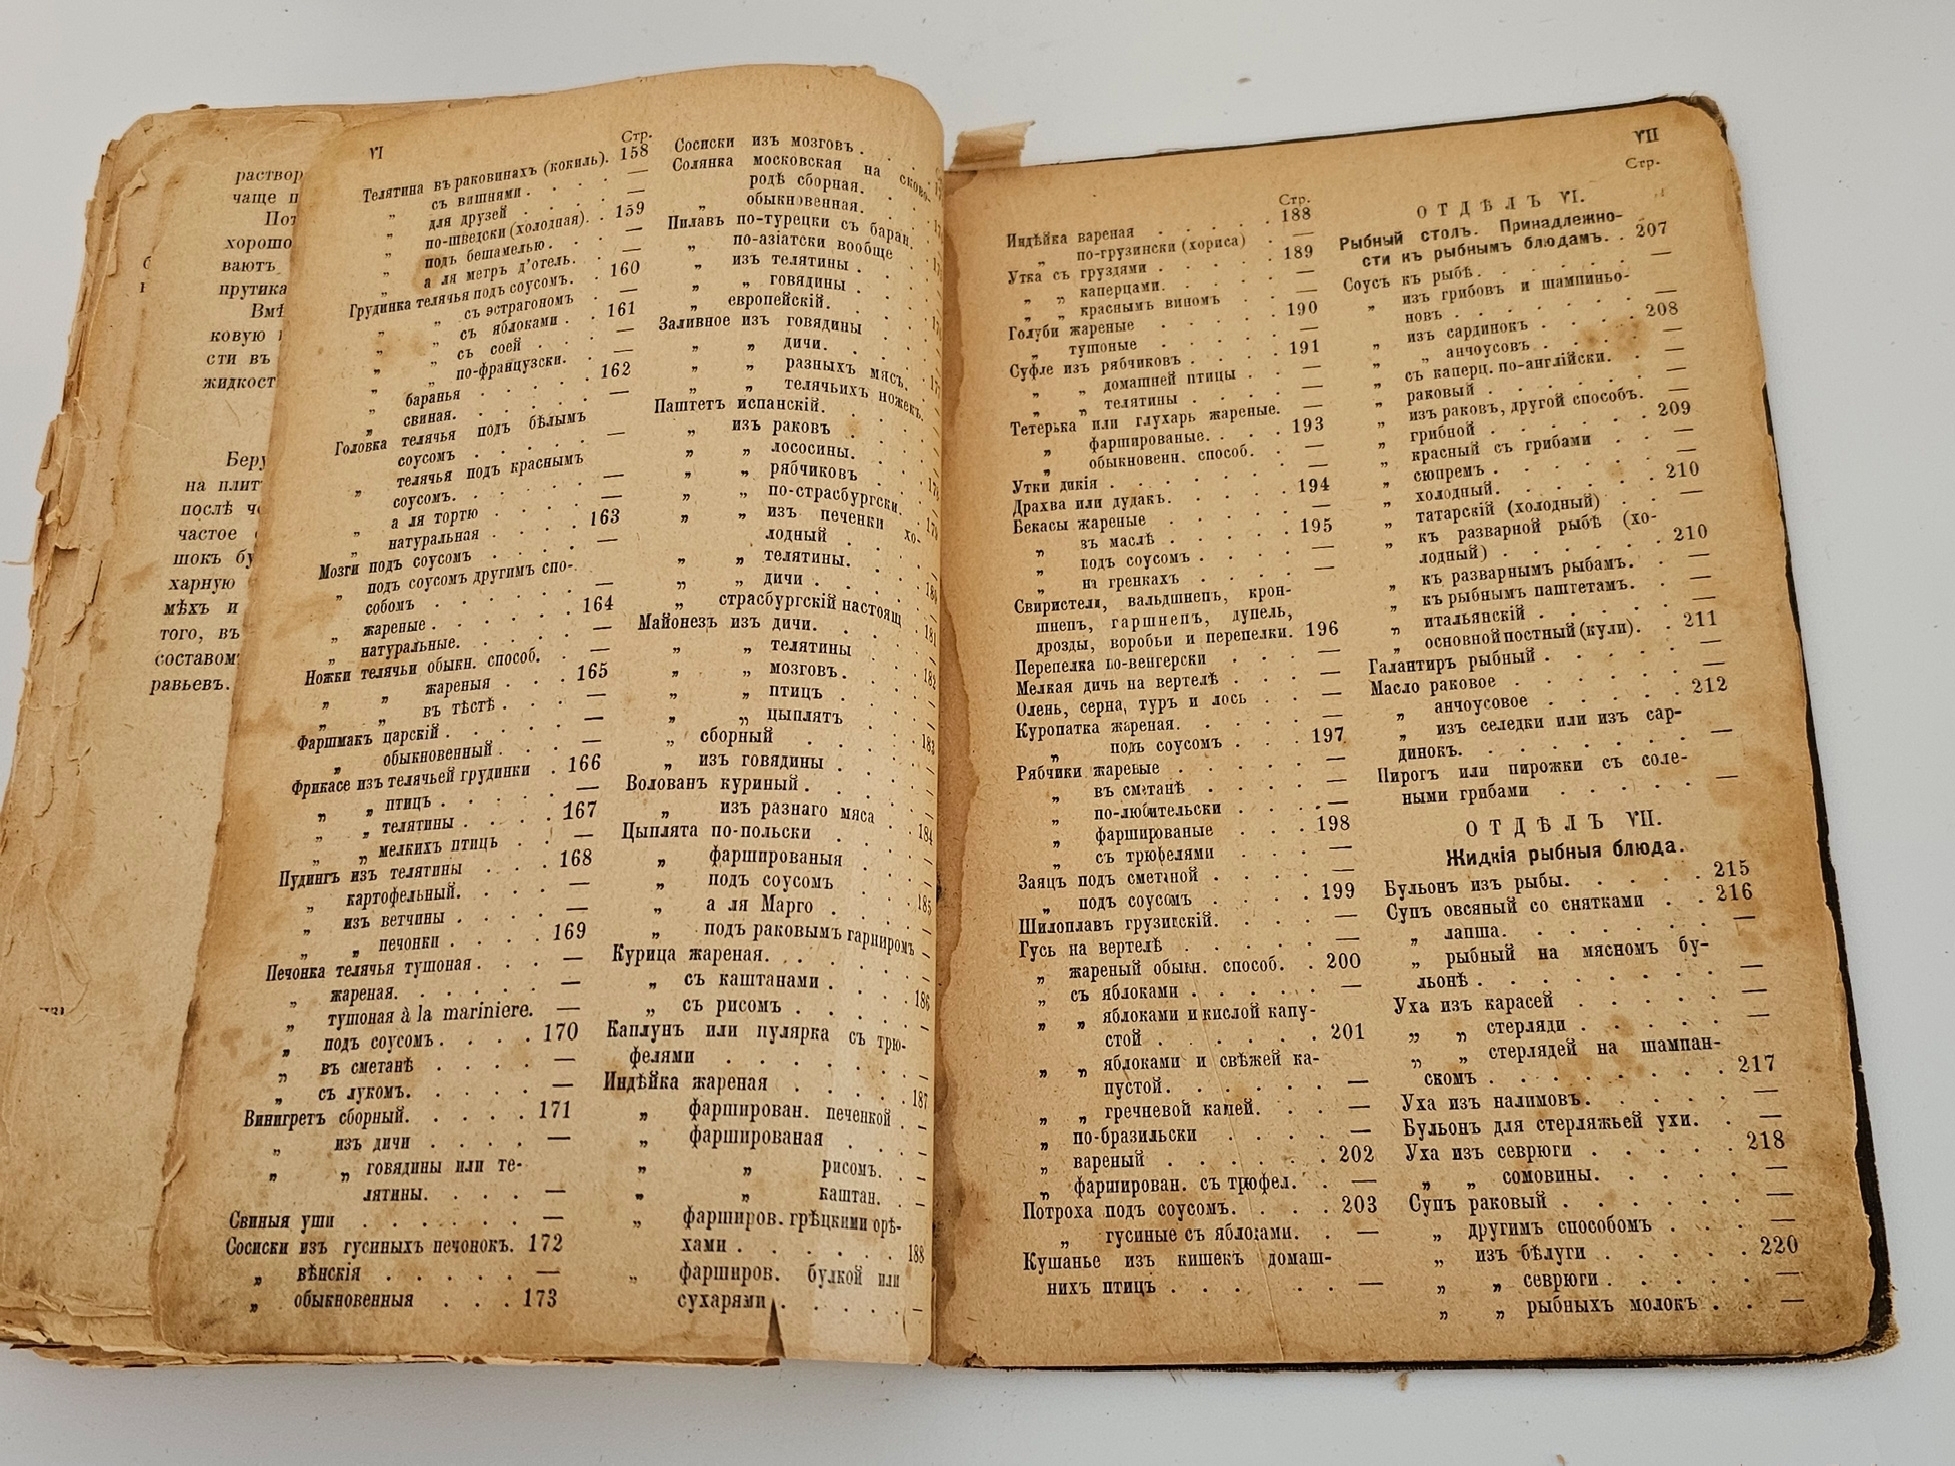 раствор
чаще п
Пот
хорошо
ваютъ
прутика
Вмѣ
ковую
сти въ
жидкост
Беру
на плит
послѣ ч
частое
шокъ бу
харную
мѣхъ и
того, въ
составом
равьевъ.
VI
Стр.
Телятина въ раковинахъ (кокиль). 158
„ съ вишнями . . . . —
„ для друзей . . . . —
„ по-шведски (холодная). . 159
„ подъ бешамелью. . . . —
„ а ля метръ д'отель. . . —
Грудинка телячья подъ соусомъ. . 160
„ „ съ эстрагономъ . —
„ „ съ яблоками . . 161
„ „ съ соей . . . —
„ „ по-французски. . —
„ баранья . . . . . 162
„ свиная. . . . . . —
Головка телячья подъ бѣлымъ
соусомъ . . . . . —
„ телячья подъ краснымъ
соусомъ. . . . . . —
„ а ля тортю . . . . —
„ натуральная . . . . 163
Мозги подъ соусомъ . . . . —
„ подъ соусомъ другимъ спо-
собомъ . . . . . —
„ жареные . . . . . 164
„ натуральные. . . . . —
Ножки телячьи обыкн. способ. . —
„ „ жареныя . . . 165
„ „ въ тѣстѣ . . . —
Фаршмакъ царскій . . . . —
„ обыкновенный . . . —
Фрикасе изъ телячьей грудинки . 166
„ „ птицъ . . . . —
„ „ телятины . . . 167
„ „ мелкихъ птицъ . . —
Пудингъ изъ телятины . . . 168
„ картофельный. . . . —
„ изъ ветчины . . . . —
„ „ печонки . . . . 169
Печонка телячья тушоная . . . —
„ жареная. . . . . . —
„ тушоная à la mariniere. —
„ подъ соусомъ . . . . 170
„ въ сметанѣ . . . . —
„ съ лукомъ. . . . . —
Винигретъ сборный. . . . . 171
„ изъ дичи . . . . —
„ „ говядины или те-
лятины. . . . —
Свиныя уши . . . . . . —
Сосиски изъ гусиныхъ печонокъ. 172
„ вѣнскія . . . . . —
„ обыкновенныя . . . 173
Сосиски изъ мозговъ . . .
Солянка московская на сково-
родѣ сборная. . .
„ обыкновенная. . .
Пилавъ по-турецки съ баран.
„ по-азіатски вообще
„ изъ телятины . . .
„ „ говядины . . .
„ европейскій. . . .
Заливное изъ говядины
„ „ дичи. . . .
„ „ разныхъ мясъ.
„ „ телячьихъ ножекъ.
Паштетъ испанскій. . . .
„ изъ раковъ . . .
„ „ лососины. . .
„ „ рябчиковъ . .
„ „ по-страсбургски.
„ „ изъ печенки хо-
лодный . . .
„ „ телятины. . .
„ „ дичи . . . .
„ страсбургскій настоящ
Майонезъ изъ дичи. . . . 181
„ „ телятины . .
„ „ мозговъ. . . 182
„ „ птицъ . . .
„ „ цыплятъ . .
„ сборный . . . . 183
„ изъ говядины . . . —
Волованъ куриный . . . . —
„ изъ разнаго мяса . 184
Цыплята по-польски . . . —
„ фаршированыя . . —
„ подъ соусомъ . . 185
„ а ля Марго . . . —
„ подъ раковымъ гарниромъ —
Курица жареная. . . . . —
„ съ каштанами . . . 186
„ съ рисомъ . . . . —
Каплунъ или пулярка съ трю-
фелями . . . . . —
Индѣйка жареная . . . . 187
„ фарширован. печенкой . —
„ фаршированая . . —
„ „ рисомъ. . —
„ „ каштан. . —
„ фарширов. грѣцкими орѣ-
хами . . . . . . 188
„ фарширов. булкой или
сухарями . . . . . —
VII
Стр.
Индѣйка вареная . . . . . 188
„ по-грузински (хориса) . —
Утка съ груздями . . . . . 189
„ „ каперцами. . . . . —
„ „ краснымъ виномъ . . . —
Голуби жареные . . . . . 190
„ тушоные . . . . . —
Суфле изъ рябчиковъ . . . . 191
„ „ домашней птицы . . —
„ „ телятины . . . . —
Тетерька или глухарь жареные. —
„ фаршированые. . . . 193
„ обыкновенн. способ. . —
Утки дикія . . . . . . —
Драхва или дудакъ. . . . . 194
Бекасы жареные . . . . . —
„ въ маслѣ . . . . . 195
„ подъ соусомъ . . . . —
„ на гренкахъ . . . . —
Свиристели, вальдшнепъ, крон-
шнепъ, гаршнепъ, дупель,
дрозды, воробьи и перепелки. 196
Перепелка по-венгерски . . . —
Мелкая дичь на вертелѣ . . . —
Олень, серна, туръ и лось . . —
Куропатка жареная. . . . . —
„ подъ соусомъ . . . 197
Рябчики жареные . . . . . —
„ въ сметанѣ . . . . —
„ по-любительски . . . —
„ фаршированые . . . 198
„ съ трюфелями . . . —
Заяцъ подъ сметаной . . . . —
„ подъ соусомъ . . . . 199
Шилоплавъ грузинскій. . . . —
Гусь на вертелѣ . . . . . —
„ жареный обыкн. способ. . 200
„ съ яблоками . . . . . —
„ „ яблоками и кислой капу-
стой . . . . . . 201
„ „ яблоками и свѣжей ка-
пустой. . . . . . —
„ „ гречневой кашей. . . —
„ по-бразильски . . . . —
„ вареный . . . . . . 202
„ фарширован. съ трюфел. . —
Потроха подъ соусомъ. . . . 203
„ гусиные съ яблоками. . —
Кушанье изъ кишекъ домаш-
нихъ птицъ . . . . . . —
Стр.
ОТДѢЛЪ VI.
Рыбный столъ. Принадлежно-
сти къ рыбнымъ блюдамъ. . 207
Соусъ къ рыбѣ. . . . . . —
„ изъ грибовъ и шампиньо-
новъ . . . . . . —
„ изъ сардинокъ . . . . 208
„ „ анчоусовъ . . . . —
„ съ каперц. по-англійски. . —
„ раковый . . . . . . —
„ изъ раковъ, другой способъ. —
„ грибной . . . . . . 209
„ красный съ грибами . . —
„ сюпремъ . . . . . . —
„ холодный. . . . . . 210
„ татарскій (холодный) . . —
„ къ разварной рыбѣ (хо-
лодный) . . . . . . 210
„ къ разварнымъ рыбамъ. . —
„ къ рыбнымъ паштетамъ. . —
„ итальянскій . . . . . —
„ основной постный (кули). . 211
Галантиръ рыбный . . . . . —
Масло раковое . . . . . . —
„ анчоусовое . . . . . 212
„ изъ селедки или изъ сар-
динокъ. . . . . . . —
Пирогъ или пирожки съ соле-
ными грибами . . . . . —
ОТДѢЛЪ VII.
Жидкія рыбныя блюда.
Бульонъ изъ рыбы. . . . . 215
Супъ овсяный со снятками . . 216
„ лапша. . . . . . . —
„ рыбный на мясномъ бу-
льонѣ . . . . . . . —
Уха изъ карасей . . . . . —
„ „ стерляди . . . . . —
„ „ стерлядей на шампан-
скомъ . . . . . . . 217
Уха изъ налимовъ. . . . . —
Бульонъ для стерляжьей ухи. . —
Уха изъ севрюги . . . . . 218
„ „ сомовины. . . . . —
Супъ раковый . . . . . . —
„ другимъ способомъ . . . —
„ изъ бѣлуги . . . . . 220
„ „ севрюги . . . . . —
„ „ рыбныхъ молокъ . . . —